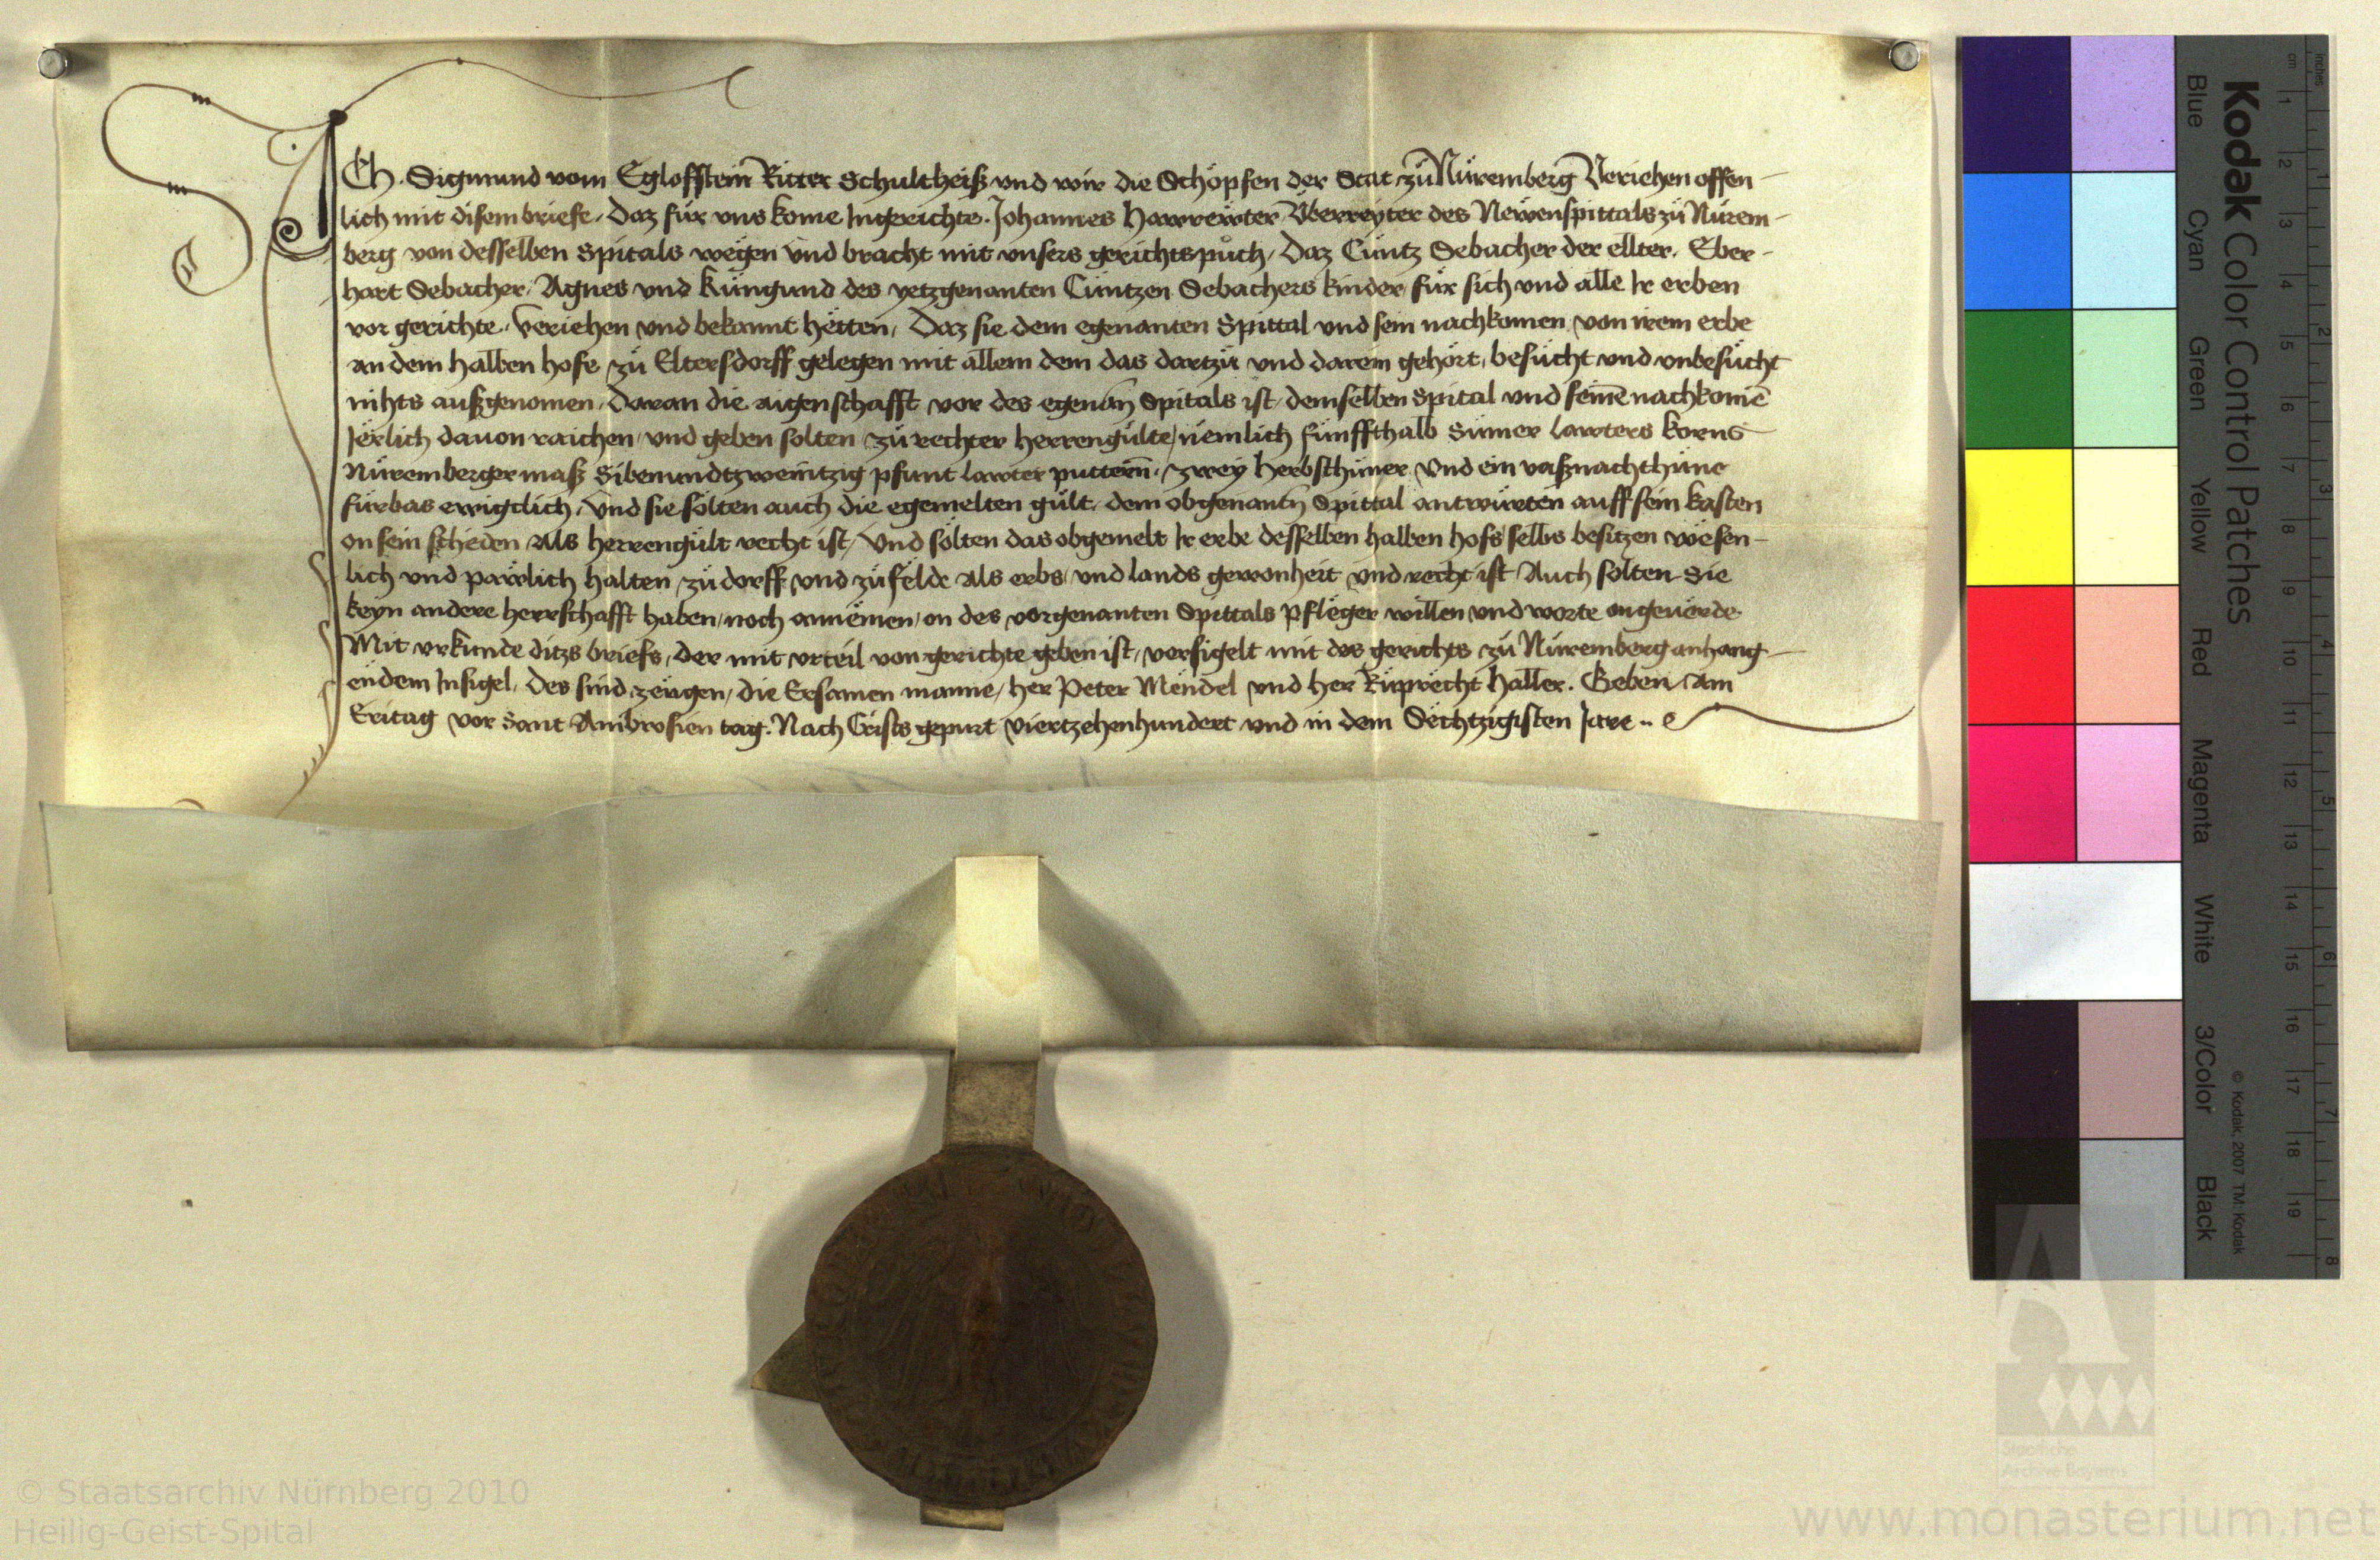 ICh. Sigmund vom Egloffstein Ritter Schultheiß vnd wir die Schöpfen der Stat zů Nüremberg Veriehen offen-
lich mit disem briefe, Daz für vns kome Ingerichte. Johannes Hawrewter Vberreyter des Newenspittals zů Nürem-
berg von desselben Spitals wegen Vnd bracht mit vnsers gerichtspůch, Daz Cůntz Sebacher der ellter. Eber-
hart Sebacher, Agnes vnd Küngund des yetzgenanten Cůntzen Sebachers kinder für sich vnd alle Ir erben
vor gerichte, Veriehen vnd bekannt hetten, Daz sie dem egenanten Spittal vnd sein nachkomen von irem erbe
an dem halben hofe zů Eltersdorff gelegen mit allem dem das dartzů vnd darein gehört, besůcht vnd vnbesůcht
nihts außgenomen, Daran die aigenschafft vor des egenan̄ Spitals ist, demselben Spital vnd seinē nachkomē
Jerlich dauon raichen, vnd geben solten zů rechter herrengülte, nemlich fünffthalb Sümer lawters korns
Nüremberger maß Sibenundtzweintzig pfunt lawter puttern̄, zwey herbsthüner Vnd ein vaßnachthüne
fürbas ewigclich, Vnd sie solten auch die egemelten gült, dem obgenantn̄ Spittal antwürten auff sein kasten
on sein scheden als herrengült recht ist, Vnd solten das obgemelt Ir erbe desselben halben hofs selbs besitzen wesen-
lich vnd pawlich halten zů dorff vnd zů felde als erbs, vnd lands gewonheit vnd recht ist Auch solten Sie
keyn andere herrschafft haben, noch annemen, on des vorgenanten Spittals Pfleger willen vnd worte ongeuerde
Mit vrkunde ditzs briefs, der mit vrteil von gerichte geben ist, versigelt mit des gerichts zů Nüremberg anhang-
endem Insigel, Des sind zeugen, die Ersamen manne, her Peter Mendel vnd her Ruprecht Haller. Geben Am
Eritag vor Sant Ambrosien tag. Nach Crists gepurt Viertzehenhundert vnd in dem Sechtzigisten Jare
Kodak Color Control Patches
Blue Cyan Green Yellow Red Magenta White 3/Color Black
© Kodak, 2007 TM: Kodak
cm 1 2 3 4 5 6 7 8 9 10 11 12 13 14 15 16 17 18 19
inches 1 2 3 4 5 6 7 8
Staatliche
Archive Bayerns
© Staatsarchiv Nürnberg 2010
Heilig-Geist-Spital
www.monasterium.net